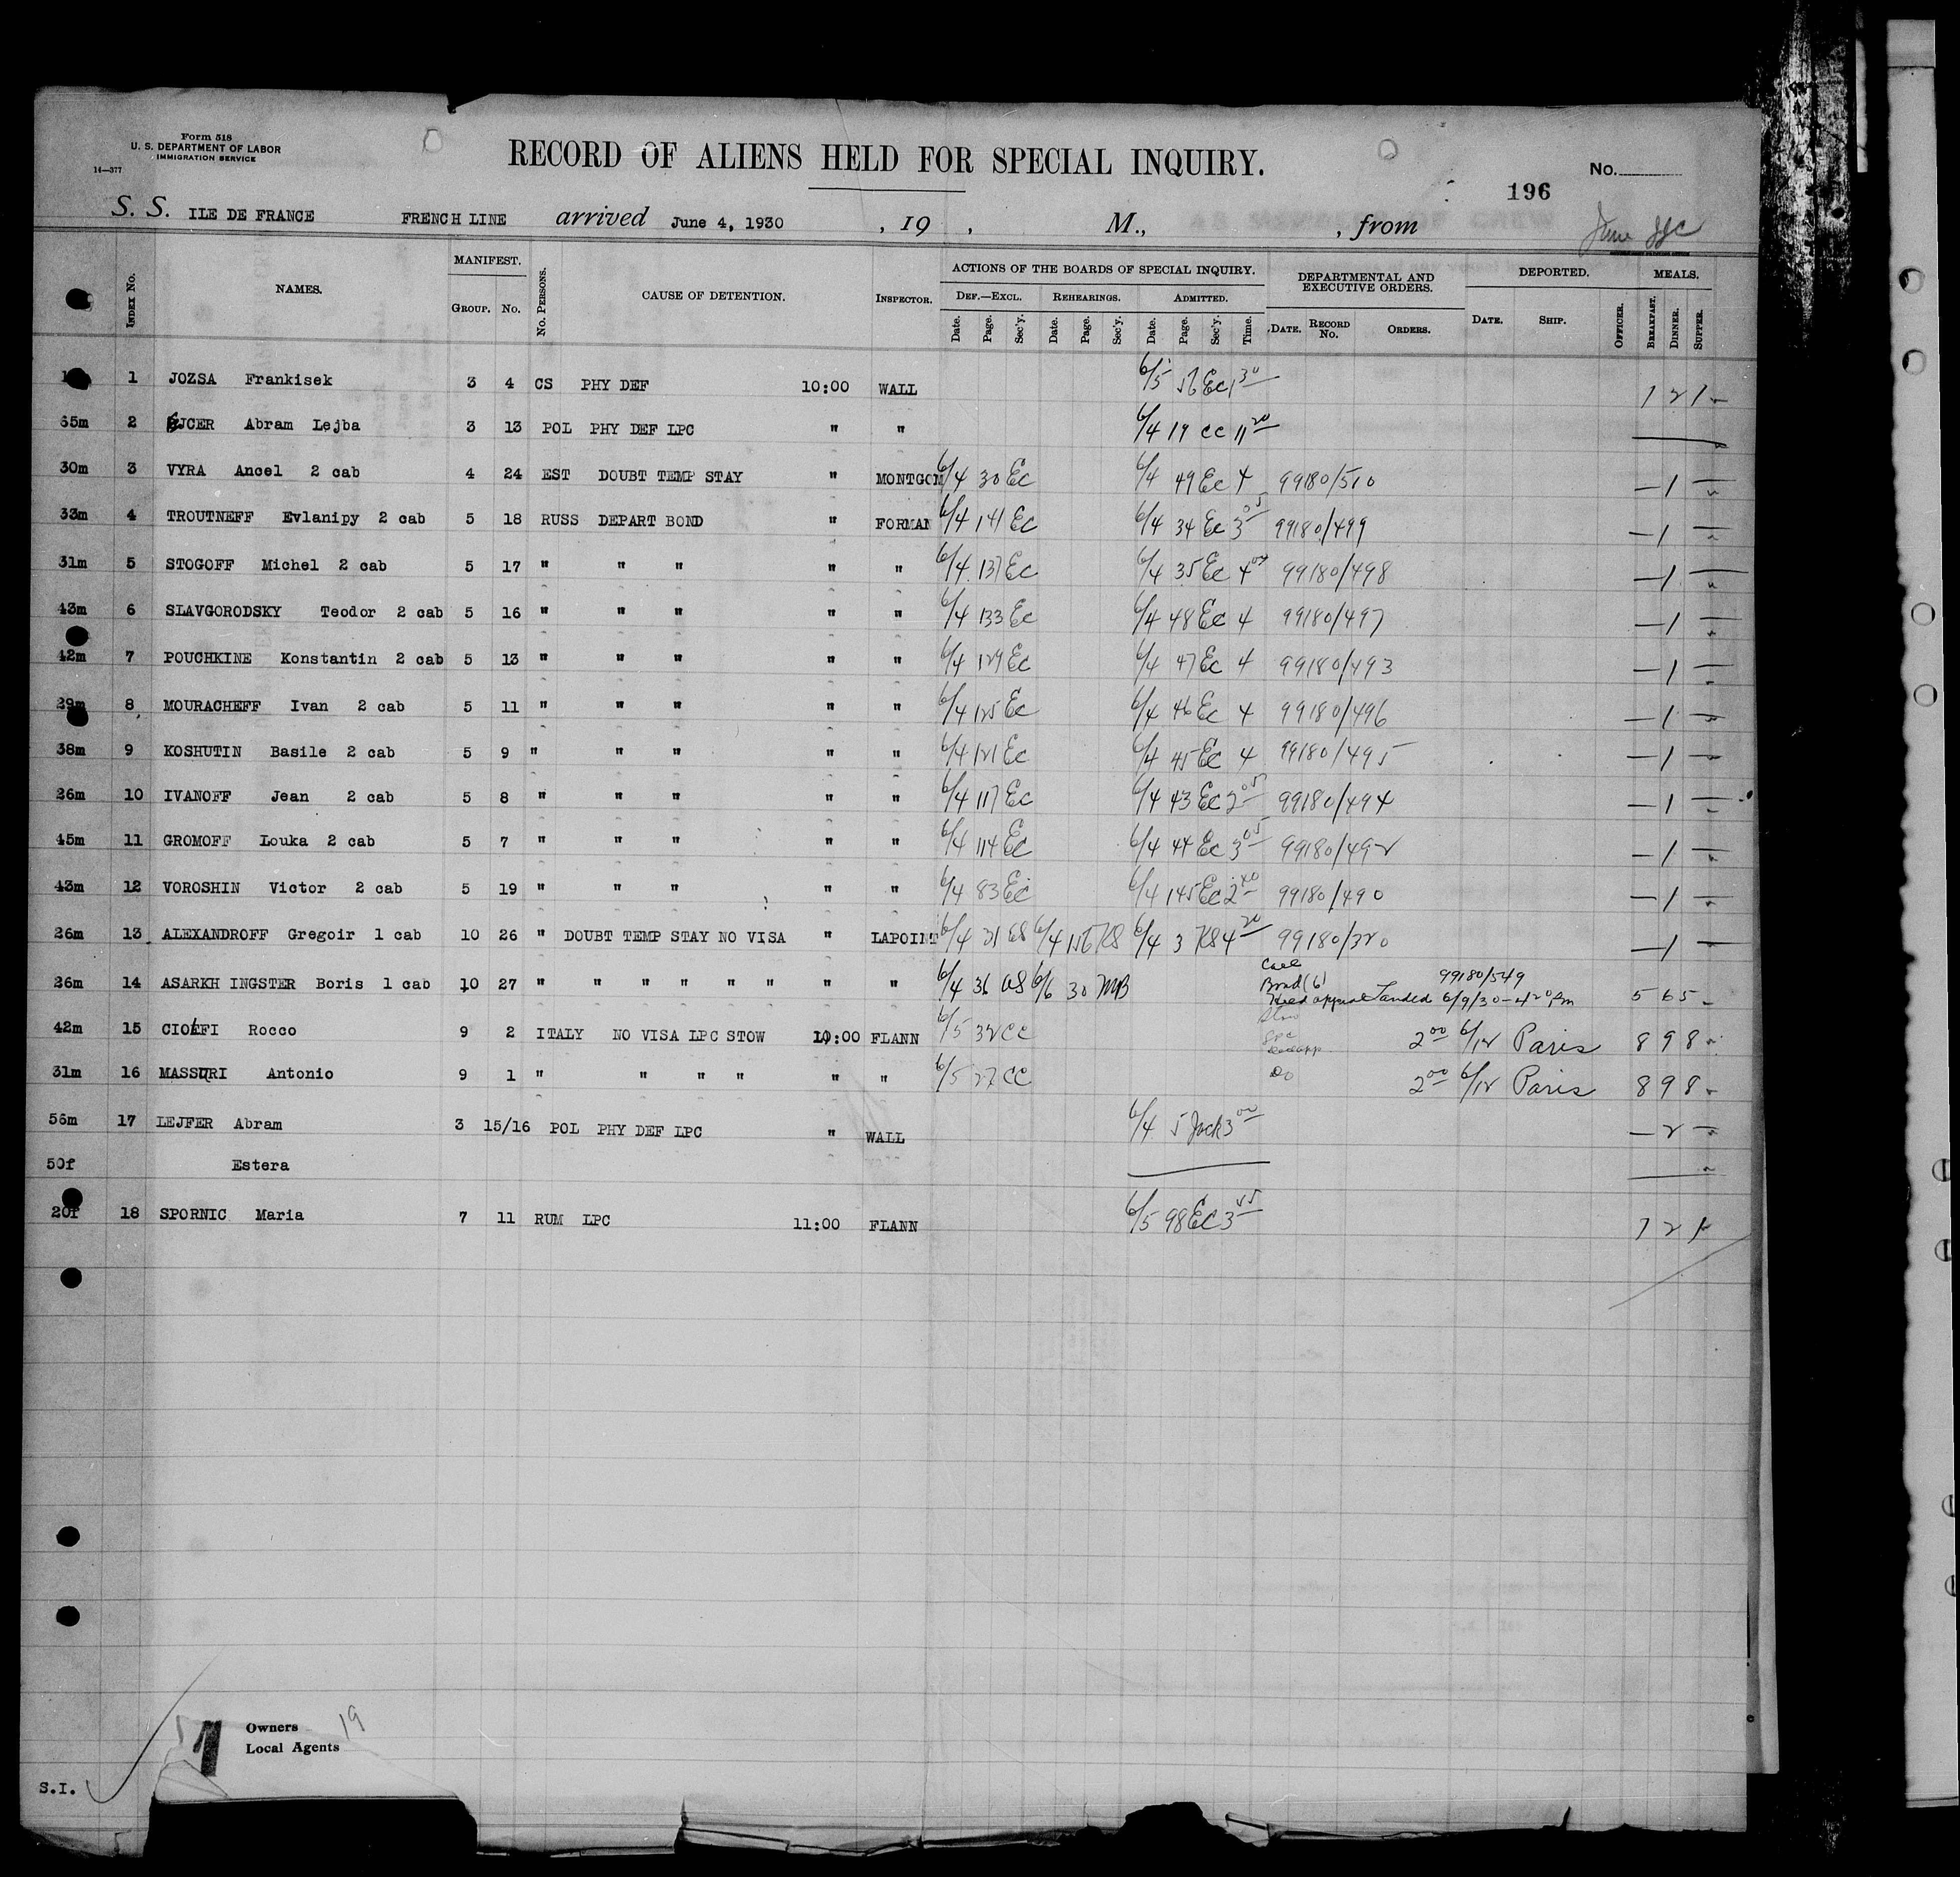 Form 518
U. S. DEPARTMENT OF LABOR
IMMIGRATION SERVICE
14—377
RECORD OF ALIENS HELD FOR SPECIAL INQUIRY.
No.
196
S. S. ILE DE FRANCE FRENCH LINE arrived June 4, 1930 , 19 , M., , from
Index No. NAMES. MANIFEST. Group. No. No. Persons. CAUSE OF DETENTION. Inspector. ACTIONS OF THE BOARDS OF SPECIAL INQUIRY. Def.—Excl. Date. Page. Sec'y. Rehearings. Date. Page. Sec'y. Admitted. Date. Page. Sec'y. Time. DEPARTMENTAL AND EXECUTIVE ORDERS. Date. Record No. Orders. DEPORTED. Date. Ship. Officer. MEALS. Breakfast. Dinner. Supper.
1 JOZSA Frankisek 3 4 CS PHY DEF 10:00 WALL 6/5 56 Ec 1 30 1 2 1
65m 2 EJCER Abram Lejba 3 13 POL PHY DEF LPC " " 6/4 19 CC 11 20
30m 3 VYRA Ancel 2 cab 4 24 EST DOUBT TEMP STAY " MONTGOM 6/4 30 Ec 6/4 49 Ec 4 99180/510 — 1 —
33m 4 TROUTNEFF Evlanipy 2 cab 5 18 RUSS DEPART BOND " FORMAN 6/4 141 Ec 6/4 34 Ec 3 05 99180/499 — 1 —
31m 5 STOGOFF Michel 2 cab 5 17 " " " " " 6/4 137 Ec 6/4 35 Ec 4 05 99180/498 — 1 —
43m 6 SLAVGORODSKY Teodor 2 cab 5 16 " " " " " 6/4 133 Ec 6/4 48 Ec 4 99180/497 — 1 —
42m 7 POUCHKINE Konstantin 2 cab 5 13 " " " " " 6/4 129 Ec 6/4 47 Ec 4 99180/493 — 1 —
29m 8 MOURACHEFF Ivan 2 cab 5 11 " " " " " 6/4 125 Ec 6/4 46 Ec 4 99180/496 — 1 —
38m 9 KOSHUTIN Basile 2 cab 5 9 " " " " " 6/4 121 Ec 6/4 45 Ec 4 99180/495 — 1 —
26m 10 IVANOFF Jean 2 cab 5 8 " " " " " 6/4 117 Ec 6/4 43 Ec 2 05 99180/494 — 1 —
45m 11 GROMOFF Louka 2 cab 5 7 " " " " " 6/4 114 Ec 6/4 44 Ec 3 05 99180/492 — 1 —
43m 12 VOROSHIN Victor 2 cab 5 19 " " " " " 6/4 83 Ec 6/4 145 Ec 2 40 99180/490 — 1 —
26m 13 ALEXANDROFF Gregoir 1 cab 10 26 " DOUBT TEMP STAY NO VISA " LAPOINT 6/4 31 6/4 6/4 3 KS 4 20 99180/320 — 1 —
26m 14 ASARKH INGSTER Boris 1 cab 10 27 " " " " " " " " 6/4 36 6/6 30 MB 99180/549
Bond (6)
appeal Landed 6/9/30 — 4 20 pm 5 6 5
42m 15 CIOLFI Rocco 9 2 ITALY NO VISA LPC STOW 10:00 FLANN 6/5 32 CC 2 00 6/12 Paris 8 9 8
31m 16 MASSURI Antonio 9 1 " " " " " " 6/5 27 CC Do 2 00 6/12 Paris 8 9 8
56m 17 LEJFER Abram 3 15/16 POL PHY DEF LPC " WALL 6/4 5 3 00 — 2 —
50f Estera
20f 18 SPORNIC Maria 7 11 RUM LPC 11:00 FLANN 6/5 98 Ec 3 45 1 2 1
Owners 19
Local Agents
S.I.